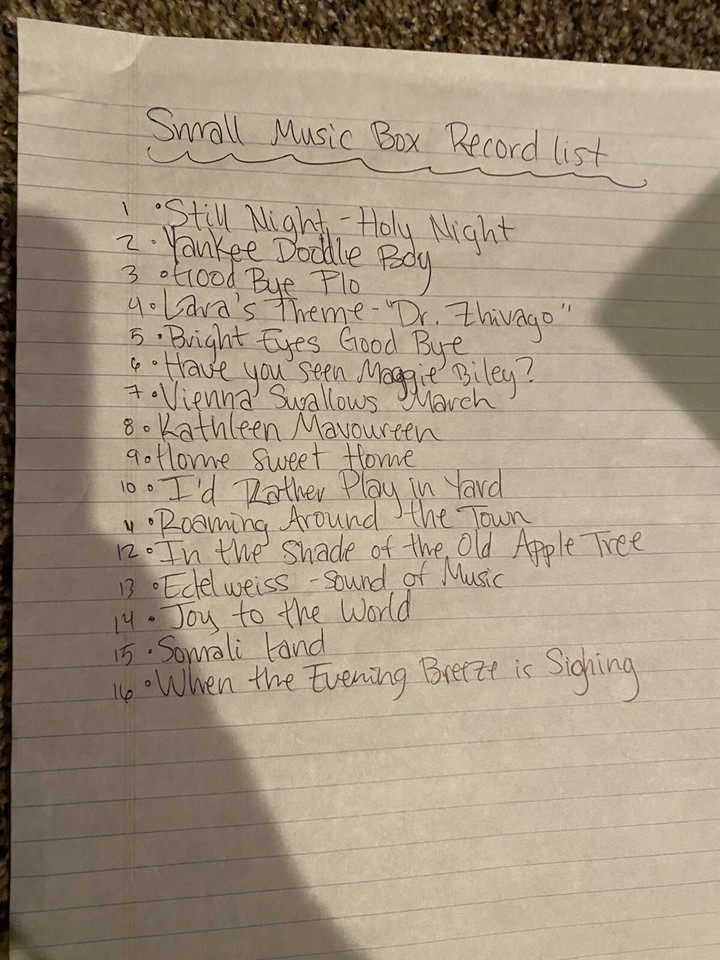 Small Music Box Record list
1 • Still Night - Holy Night
2 • Yankee Doodle Boy
3 • Good Bye Flo
4 • Lara's Theme - "Dr. Zhivago"
5 • Bright Eyes Good Bye
6 • Have you seen Maggie Biley?
7 • Vienna Swallows March
8 • Kathleen Mavoureen
9 • Home Sweet Home
10 • I'd Rather Play in Yard
11 • Roaming Around the Town
12 • In the Shade of the Old Apple Tree
13 • Edelweiss - Sound of Music
14 • Joy to the World
15 • Somali Land
16 • When the Evening Breeze is Sighing